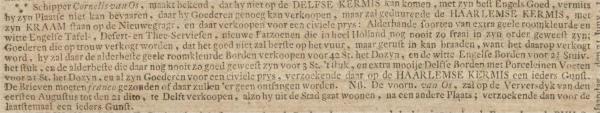 Schipper Cornelis van Os, maakt bekend, dat hy niet op de DELFSE KERMIS kan komen, met zyn best Engels Goed, vermits
hy zyn Plaatse niet kan bevaren, daar hy Goederen genoeg kan verkoopen, maar zal geduurende de HAARLEMSE KERMIS, met
zyn KRAAM staan op de Nieuwegragt, en daar verkoopen voor een civiele prys: Alderhande soorten van extra geele roomkleurde en
witte Engelse Tafel-, Desert- en Thee-Serviesen, nieuwe Fatzoenen die in heel Holland nog nooit zo fraai in zyn order geweest zyn;
Goederen die op trouw verkogt worden, dat het goed niet zal berste op het vuur, maar gerust in kan braden, want het daarop verkogt
word, hy zal daar de alderbeste geele roomkleurde Borden verkoopen voor 42 St. het Dozyn, en de witte Engelse Borden voor 23 Stuiv.
het stuk, en de alderbeste die daar nog nooit zo goed geweest zyn voor 3 St. 't stuk, en extra mooije Delfse Borden met Porceleinen Voeten
voor 21 St. het Dozyn, en al zyn Goederen voor een civiele prys, verzoekende daar op de HAARLEMSE KERMIS een ieders Gunst.
De Brieven moeten franco gezonden of daar zullen 'er geen ontfangen worden. NB. De voorn. van Os, zal op de Versversdyk van den
eersten Augustus tot den 21 dito, te Delft verkoopen, alzo hy uit de Stad gaat woonen, na een andere Plaats; verzoekende dan voor de
laatstemaal een ieders Gunst.